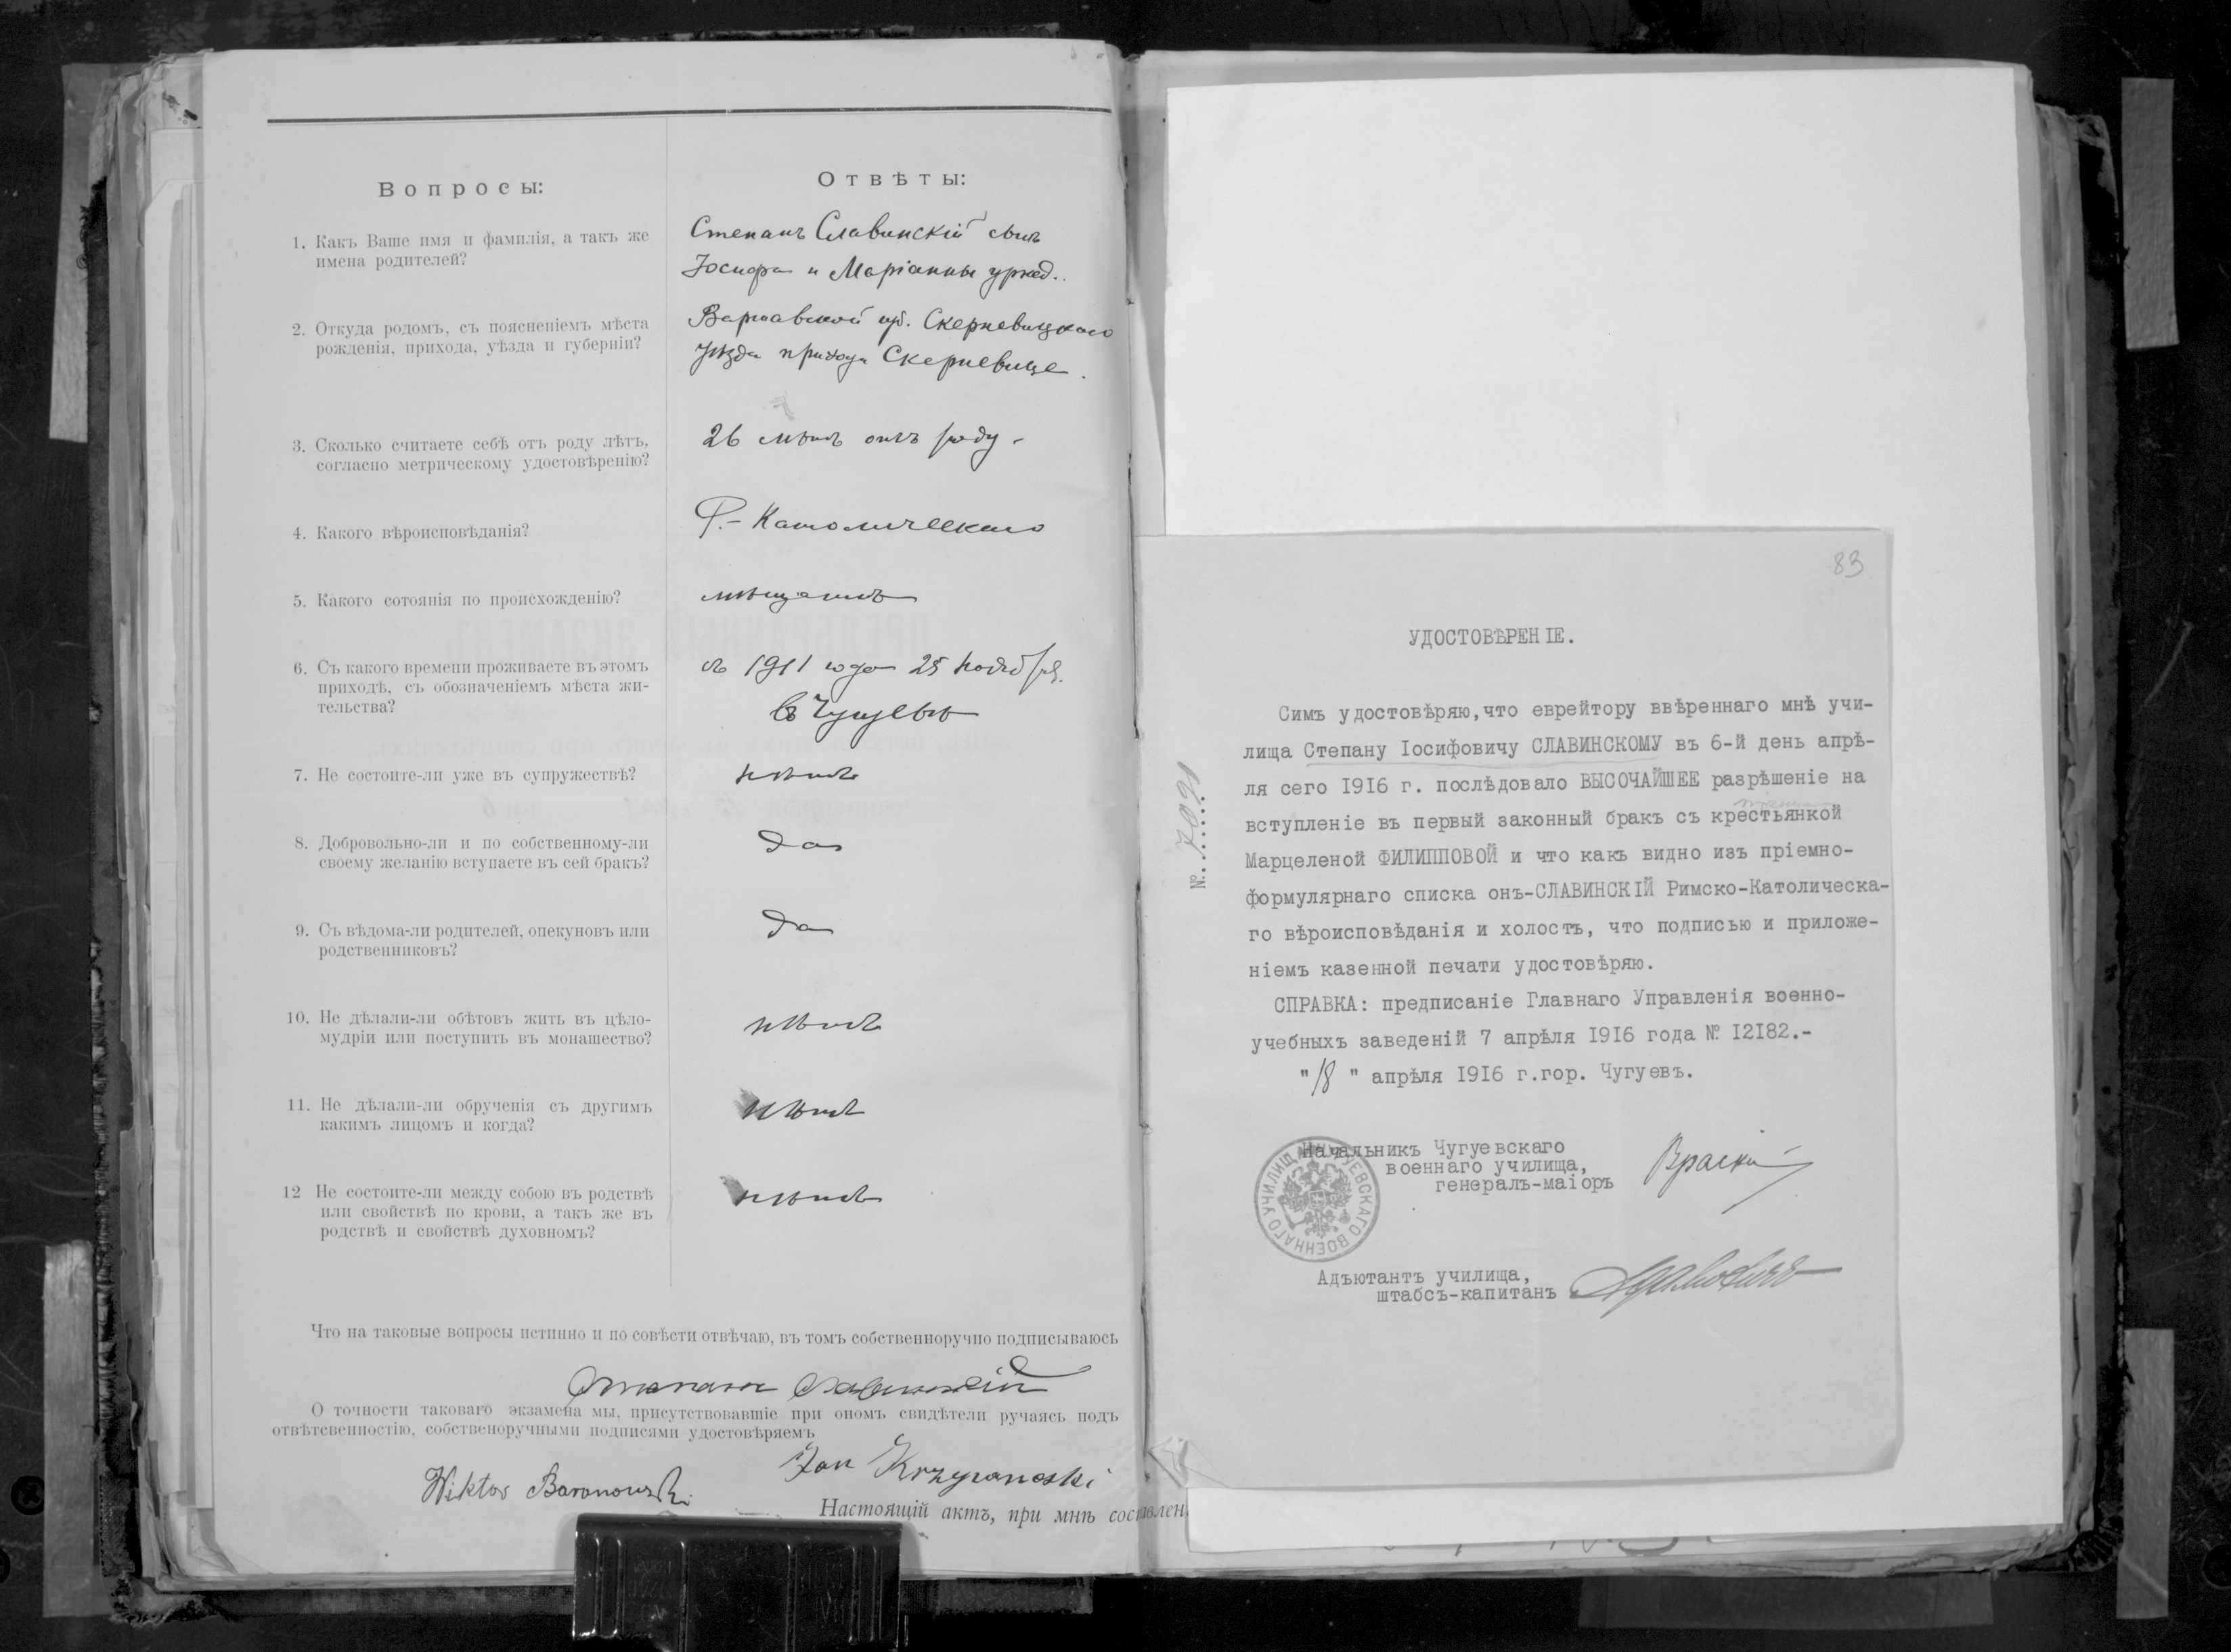 Вопросы:
Отвѣты:
1. Какъ Ваше имя и фамилія, а такъ же
имена родителей?
Степанъ Славинскій сынъ
Іосифа и Маріанны
2. Откуда родомъ, съ поясненіемъ мѣста
рожденія, прихода, уѣзда и губерніи?
Варшавской губ. Скерневицкаго
уѣзда прихода Скерневице.
3. Сколько считаете себѣ отъ роду лѣтъ,
согласно метрическому удостовѣренію?
26 лѣтъ отъ роду -
4. Какого вѣроисповѣданія?
Р.- Католическаго
5. Какого сотоянія по происхожденію?
мѣщанинъ
6. Съ какого времени проживаете въ этомъ
приходѣ, съ обозначеніемъ мѣста жи-
тельства?
съ 1911 года 25 ноября.
въ Чугуевѣ
7. Не состоите-ли уже въ супружествѣ?
нѣтъ
8. Добровольно-ли и по собственному-ли
своему желанію вступаете въ сей бракъ?
да
9. Съ вѣдома-ли родителей, опекуновъ или
родственниковъ?
да
10. Не дѣлали-ли обѣтовъ жить въ цѣло-
мудріи или поступить въ монашество?
нѣтъ
11. Не дѣлали-ли обрученія съ другимъ
какимъ лицомъ и когда?
нѣтъ
12 Не состоите-ли между собою въ родствѣ
или свойствѣ по крови, а такъ же въ
родствѣ и свойствѣ духовномъ?
нѣтъ
Что на таковые вопросы истинно и по совѣсти отвѣчаю, въ томъ собственноручно подписываюсь
Степанъ Славинскій
О точности таковаго экзамена мы, присутствовавшіе при ономъ свидѣтели ручаясь подъ
отвѣтсвенностію, собственоручными подписями удостовѣряемъ
Jan Krzyzanoski
Wiktor Baranowski
Настоящій актъ, при мнѣ составлен
83
УДОСТОВѢРЕНІЕ.
Симъ удостовѣряю,что еврейтору ввѣреннаго мнѣ учи-
лища Степану Іосифовичу СЛАВИНСКОМУ въ 6-й день апрѣ-
ля сего 1916 г. послѣдовало ВЫСОЧАЙШЕЕ разрѣшеніе на
вступленіе въ первый законный бракъ съ крестьянкой
Марцеленой ФИЛИППОВОЙ и что какъ видно изъ пріемно-
формулярнаго списка онъ-СЛАВИНСКІЙ Римско-Католическа-
го вѣроисповѣданія и холостъ, что подписью и приложе-
ніемъ казенной печати удостовѣряю.
СПРАВКА: предписаніе Главнаго Управленія военно-
учебныхъ заведеній 7 апрѣля 1916 года № 12182.-
"18" апрѣля 1916 г.гор. Чугуевъ.
№
Начальникъ Чугуевскаго
военнаго училища,
генералъ-маіоръ
ЧУГУЕВСКАГО ВОЕННАГО УЧИЛИЩА
Адъютантъ училища,
штабсъ-капитанъ